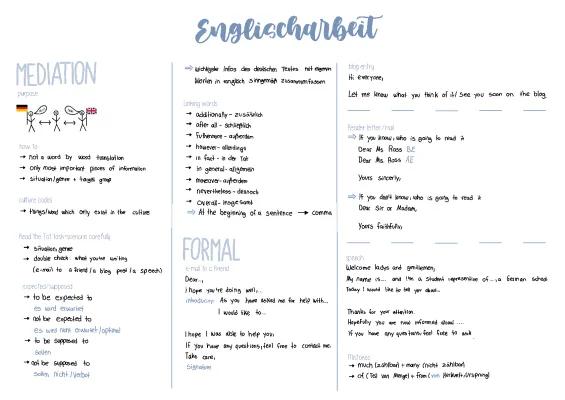 Englischarbeit
MEDIATION
purpose
how to
→ not a word by word translation
→ only most important pieces of information
→ situation/genre + target group
culture codes
→ things/word which only exist in the culture
Read the Text task + scenario carefully
→ situation, genre
→ double check: what you're writing
(e-mail to a friend/a blog post/a speech)
expected/supposed
→ to be expected to
es wird erwartet
→ not be expected to
es wird nicht erwartet/optional
→ to be supposed to
sollen
→ not be supposed to
sollen nicht/verbot
⇒ wichtigste Infos des deutschen Textes mit eigenen
Worten in englisch sinngemäß zusammenfassen
Linking words
→ additionally - zusätzlich
→ after all - schließlich
→ Futhermore - außerdem
→ however - allerdings
→ in fact - in der Tat
→ in general - allgemein
→ moreover - außerdem
→ nevertheless - dennoch
→ Overall - insgesamt
⇒ At the beginning of a sentence → comma
FORMAL
e-mail to a friend
Dear...,
I hope you're doing well,...
introducing: As you have asked me for help with...
I would like to...
I hope I was able to help you.
If you have any questions, feel free to contact me.
Take care,
Signature
blog entry
Hi everyone,
Let me know what you think of it/ See you soon on the blog
Reader letter/mail
⇒ If you know, who is going to read it
Dear Ms Ross BE
Dear Ms. Ross AE
Yours sincerly,
⇒ If you don't know, who is going to read it
Dear Sir or Madam,
Yours faithfully
speech
Welcome ladys and gentlemen,
My name is... and I'm a student represantive of ..., a German school
Today I would like to tell you about...
Thanks for your attention.
Hopefully you are now informed about ....
If you have any questions, feel free to ask
Mistakes
→ much (zählbar) + many (nicht zählbar)
→ of (Teil von Menge) + from (von Herkunft/Ursprung)